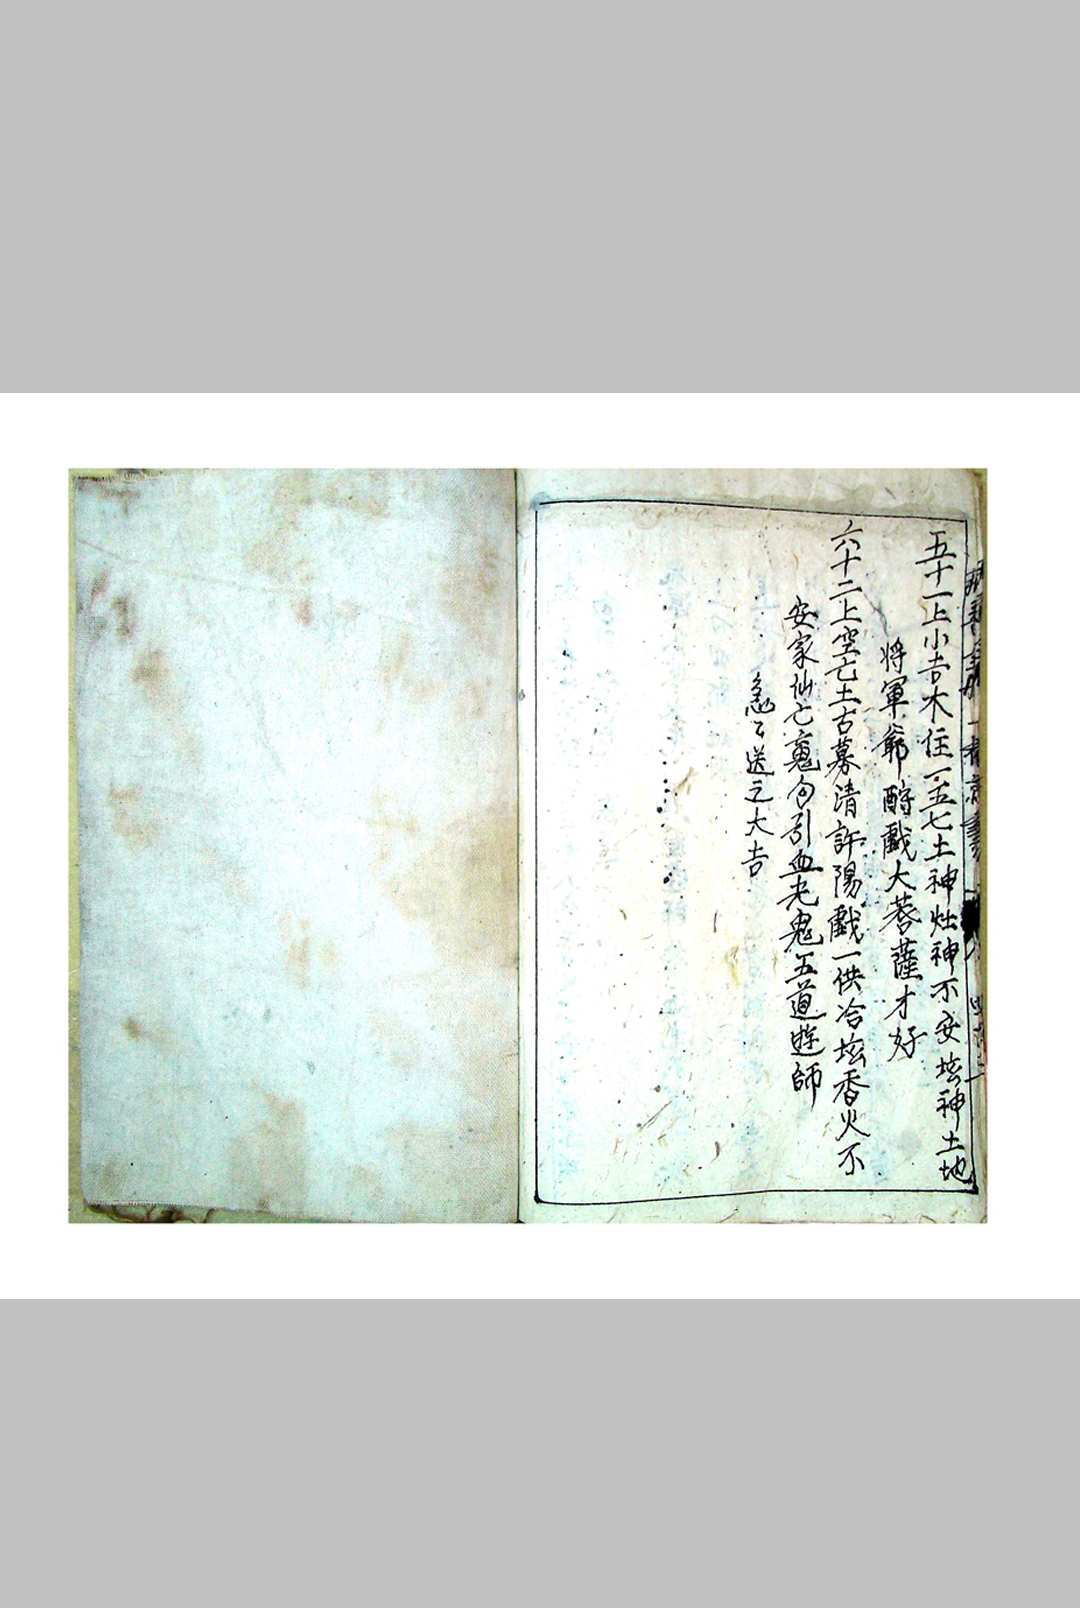 五十一上小吉木住一五七土神灶神不安坛神土地
将軍爺酧戲大菩薩才好
六十二上空亡土古墓清許陽戲一供冷坛香火不
安家仙亡䰟勾引血光鬼五道遊師
急〻送之大吉